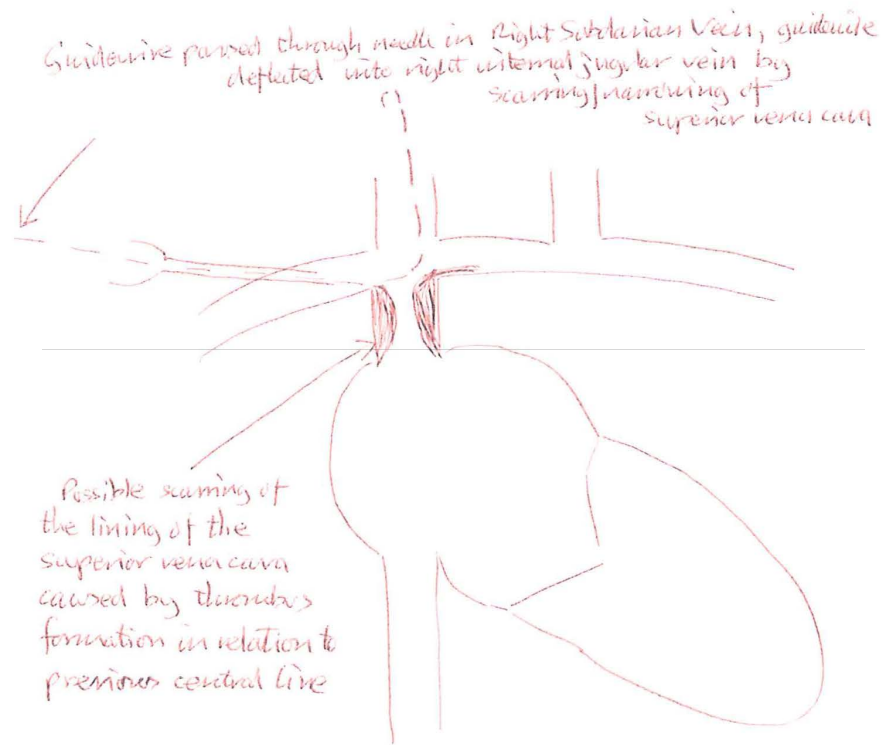 Guidewire passed through needle in Right Subclavian Vein, guidewire
deflected into right internal jugular vein by
scarring/narrowing of
superior vena cava
Possible scarring of
the lining of the
superior vena cava
caused by thrombus
formation in relation to
previous central line